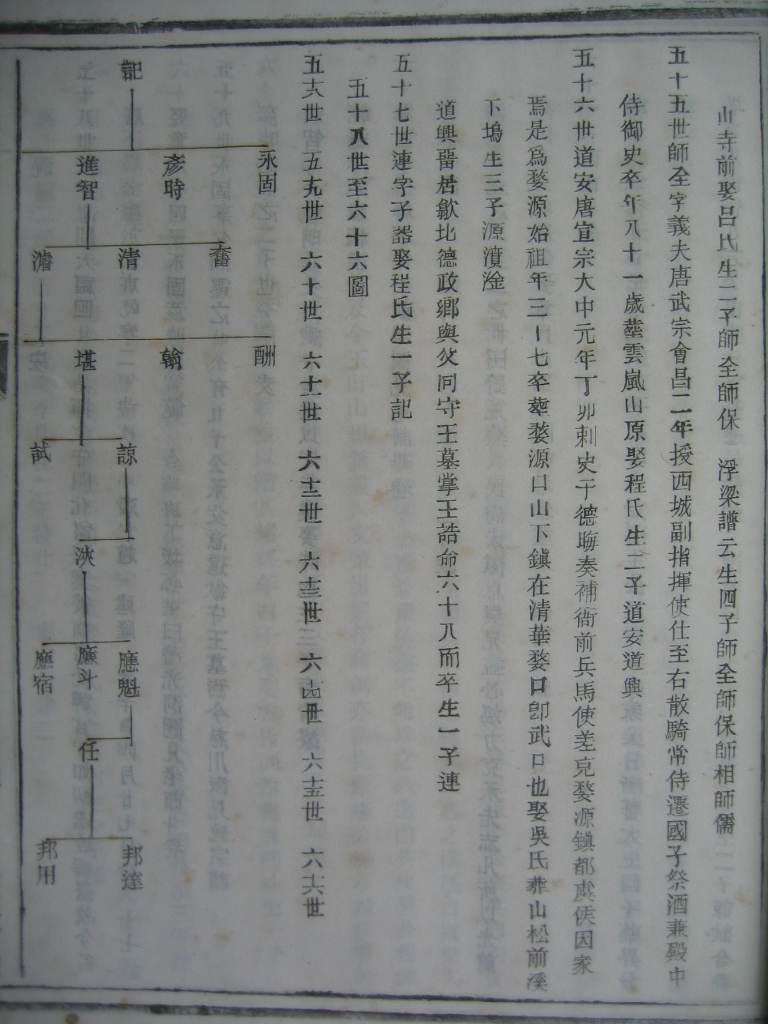 山寺前娶呂氏生二子師全師保 浮梁譜云生四子師全師保師相師儒
五十五世師全字義夫唐武宗會昌二年授西城副指揮使仕至右散騎常侍遷國子祭酒兼殿中
侍御史卒年八十一歲塟雲嵐山原娶程氏生二子道安道興
五十六世道安唐宣宗大中元年丁卯刺史于德晦奏補衙前兵馬使差充婺源鎮都虞侯因家
焉是爲婺源始祖年三十七卒塟婺源口山下鎮在清華婺口卽武口也娶吳氏葬山松前溪
下塢生三子源濆淦
道興晉居歙北德政鄉與父同守王墓掌王誥命六十八而卒生一子連
五十七世連字子器娶程氏生一子記
五十八世至六十六圖
五八世 五九世 六十世 六十一世 六十二世 六十三世 六十四世 六十五世 六十六世
記 永固 奮 酬
彥時 清 翰 諒 應魁 邦達
進智 堪 浹 應斗 任
濬 試 應宿 邦用